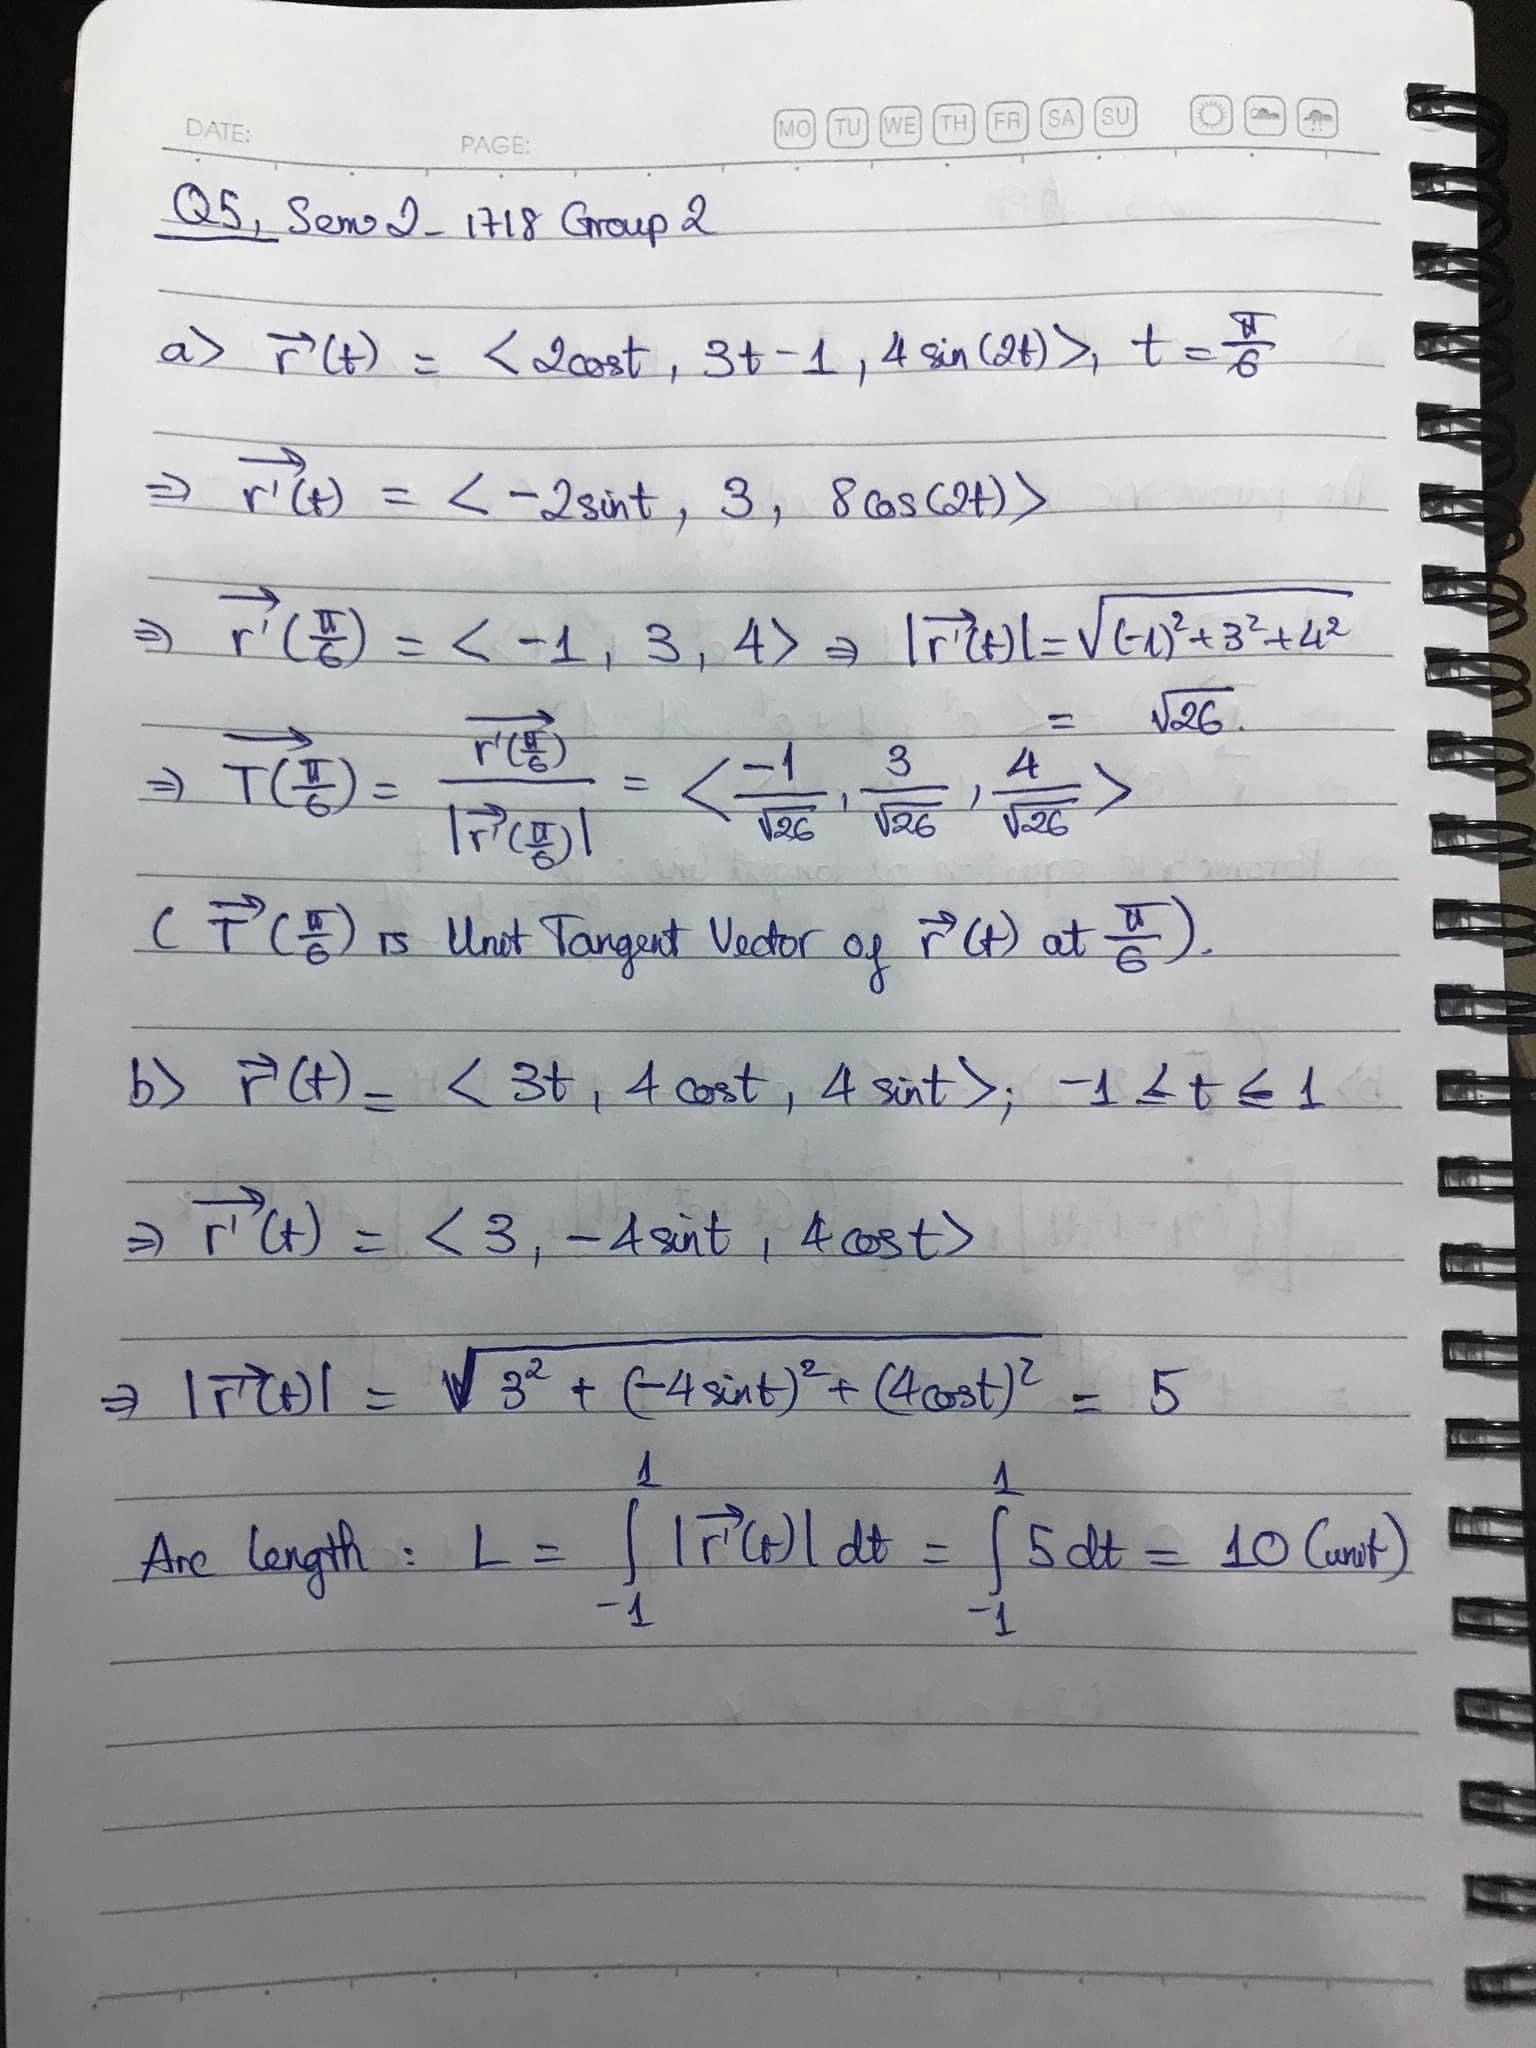 DATE: PAGE: MO TU WE TH FR SA SU
Q5, Sem 2 - 1718 Group 2
a> r⃗(t) = <2cost, 3t-1, 4 sin(2t)>, t = π/6
⇒ r'⃗(t) = <-2sint, 3, 8cos(2t)>
⇒ r'⃗(π/6) = <-1, 3, 4> ⇒ |r'⃗(t)| = √((-1)²+3²+4²)
= √26.
⇒ T⃗(π/6) = r'⃗(π/6)/|r'⃗(π/6)| = <-1/√26, 3/√26, 4/√26>
(T⃗(π/6) is Unit Tangent Vector of r⃗(t) at π/6).
b> r⃗(t) = <3t, 4cost, 4sint>; -1 ≤ t ≤ 1
⇒ r'⃗(t) = <3, -4sint, 4cost>
⇒ |r'⃗(t)| = √(3² + (-4sint)² + (4cost)²) = 5
Arc length : L = ∫₋₁¹ |r'⃗(t)| dt = ∫₋₁¹ 5dt = 10 (unit)